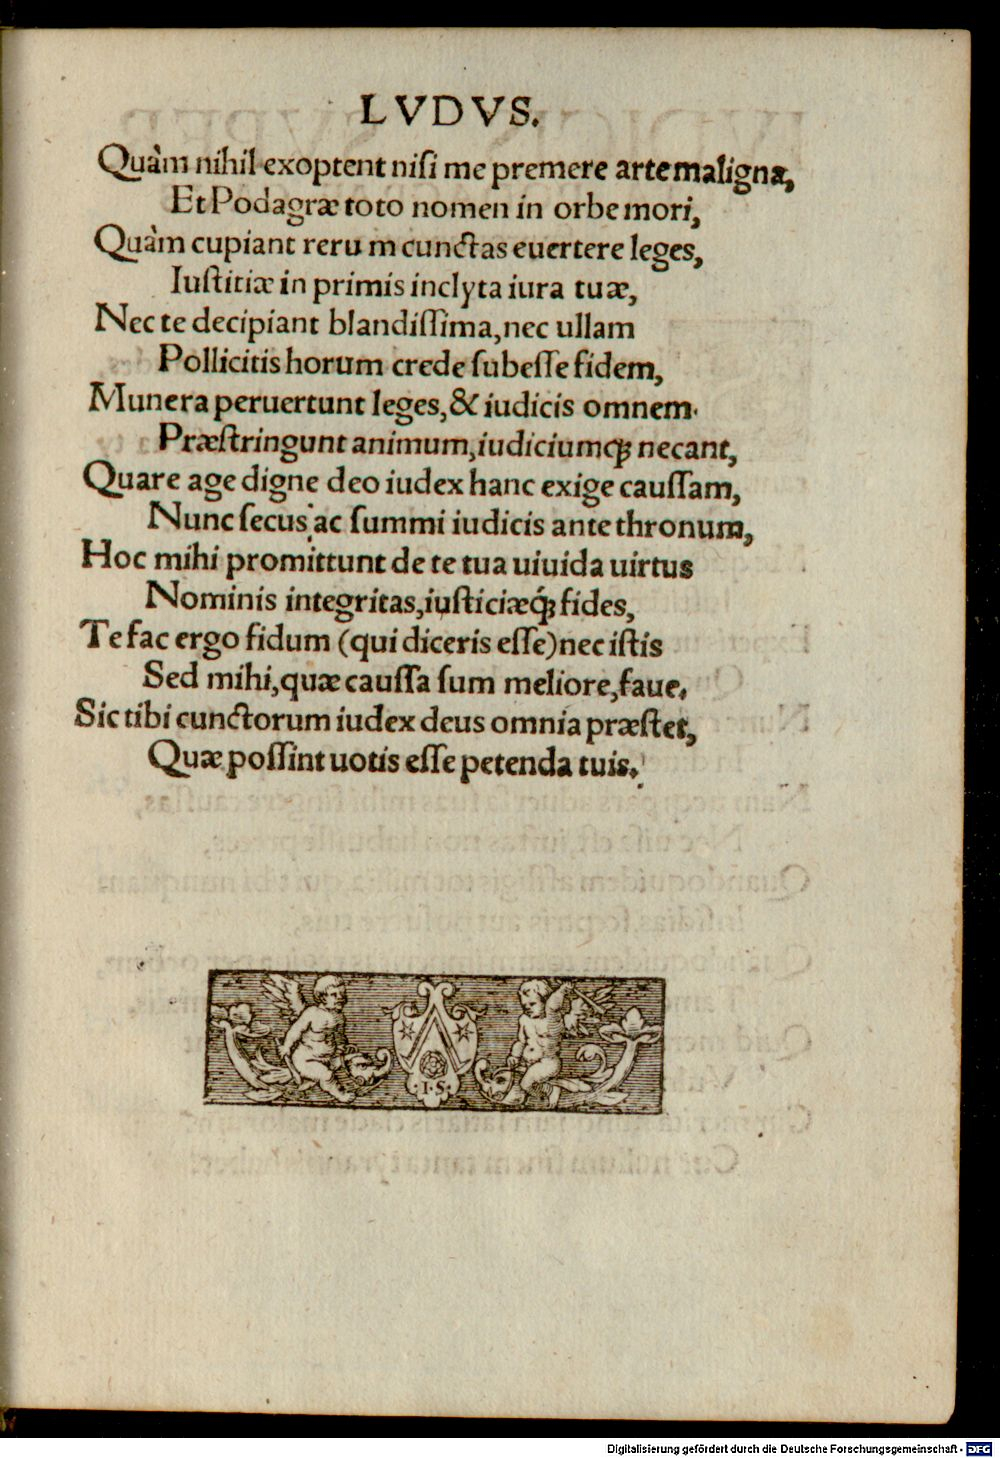 LVDVS.
Quàm nihil exoptent niſi me premere arte maligna,
Et Podagræ toto nomen in orbe mori,
Quàm cupiant rerum cunctas euertere leges,
Iuſtitiæ in primis inclyta iura tuæ,
Nec te decipiant blandiſſima, nec ullam
Pollicitis horum crede ſubeſſe fidem,
Munera peruertunt leges, & iudicis omnem.
Præſtringunt animum, iudiciumq́; necant,
Quare age digne deo iudex hanc exige cauſſam,
Nunc ſecus ac ſummi iudicis ante thronum,
Hoc mihi promittunt de te tua uiuida uirtus
Nominis integritas, iuſticiæq́; fides,
Te fac ergo fidum (qui diceris eſſe) nec iſtis
Sed mihi, quæ cauſſa ſum meliore, faue.
Sic tibi cunctorum iudex deus omnia præſtet,
Quæ poſſint uotis eſſe petenda tuis.
·I·S·
Digitalisierung gefördert durch die Deutsche Forschungsgemeinschaft - DFG